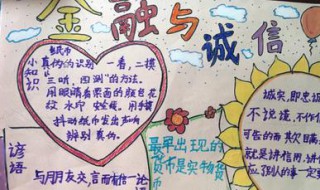 金融与诚信
小知识
纸币
真伪的识别 一看,二摸
三听,四测"的方法。
用眼睛看票面的颜色花
纹 水印 安全线。用手摸
抖动纸币发出声响
辨别真伪。
谚语
与朋友交,言而有信—论
最早出现的
货币是实物货
币
诚实,即忠诚
不说谎,不作
可告的而欺瞒
就是讲信用,讲信